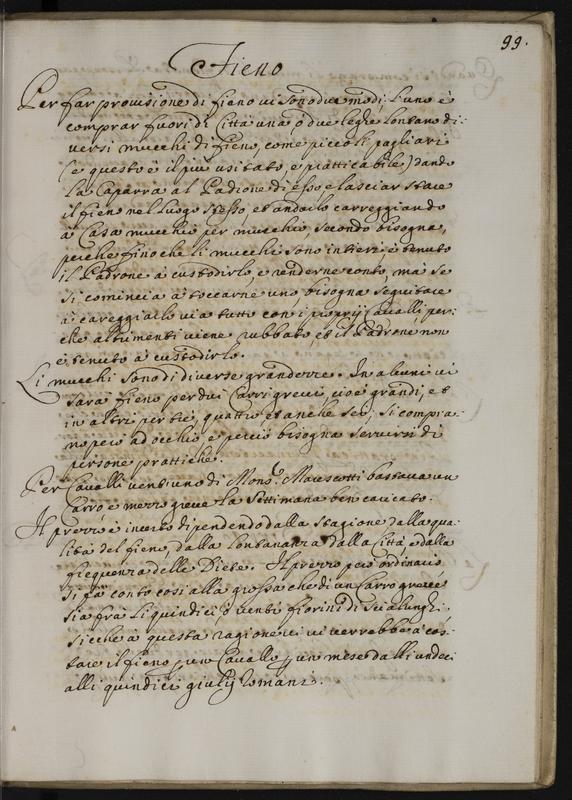 99.
Fieno
Per far provisione di fieno vi sono due modi; l'uno è
comprar fuori di Città una, ò due leghe lontano di:
versi mucchi di fieno, come piccoli pagliari
(e questo è il più usitato, e pratticabile) dando
la Caparra al Padrone di esso, e lasciar stare
il fieno nel luogo stesso, et andarlo carreggiando
à Casa mucchio per mucchio, secondo bisogna,
perche fino che li mucchi sono intieri è tenuto
il Padrone à custodirlo, e renderne conto, mà se
si comincia à toccarne uno bisogna seguitare
à careggiarlo via tutto con i proprij Cavalli per:
che altrimenti viene rubbato et il Padrone non
è tenuto à custodirlo.
Li mucchi sono di diverse grandezze. In alcuni vi
sarà fieno per dui Carri grevi, cioè grandi, et
in altri per trè, quattro, et anche sei, si compra:
no però ad occhio, e perciò bisogna servirsi di
persone prattiche.
Per Cavalli ventiuno di Monsr. Marescotti bastava un
Carro e mezzo greve la Settimana ben caricato.
Il prezzo è incerto dipendendo dalla stagione dalla qua:
lità del fieno, dalla lontananza dalla Città e dalla
frequenza delle Diete. Il prezzo però ordinario
si fà conto così alla grossa che di un Carro greve
sia frà li quindici, ò venti fiorini di Scialunghi,
sicche à questa ragione vi verrebbe à cos:
tare il fieno p un Cavallo p un mese dalli undeci
alli quindici giulij Romani.